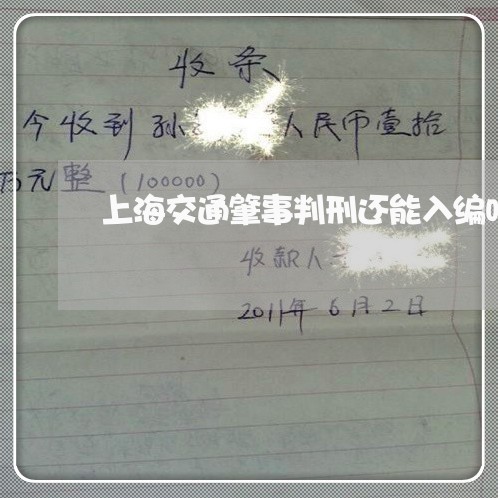 收条
今收到孙 人民币壹拾
万元整(100000)
上海交通肇事判刑还能入编
收款人
2011年6月2日